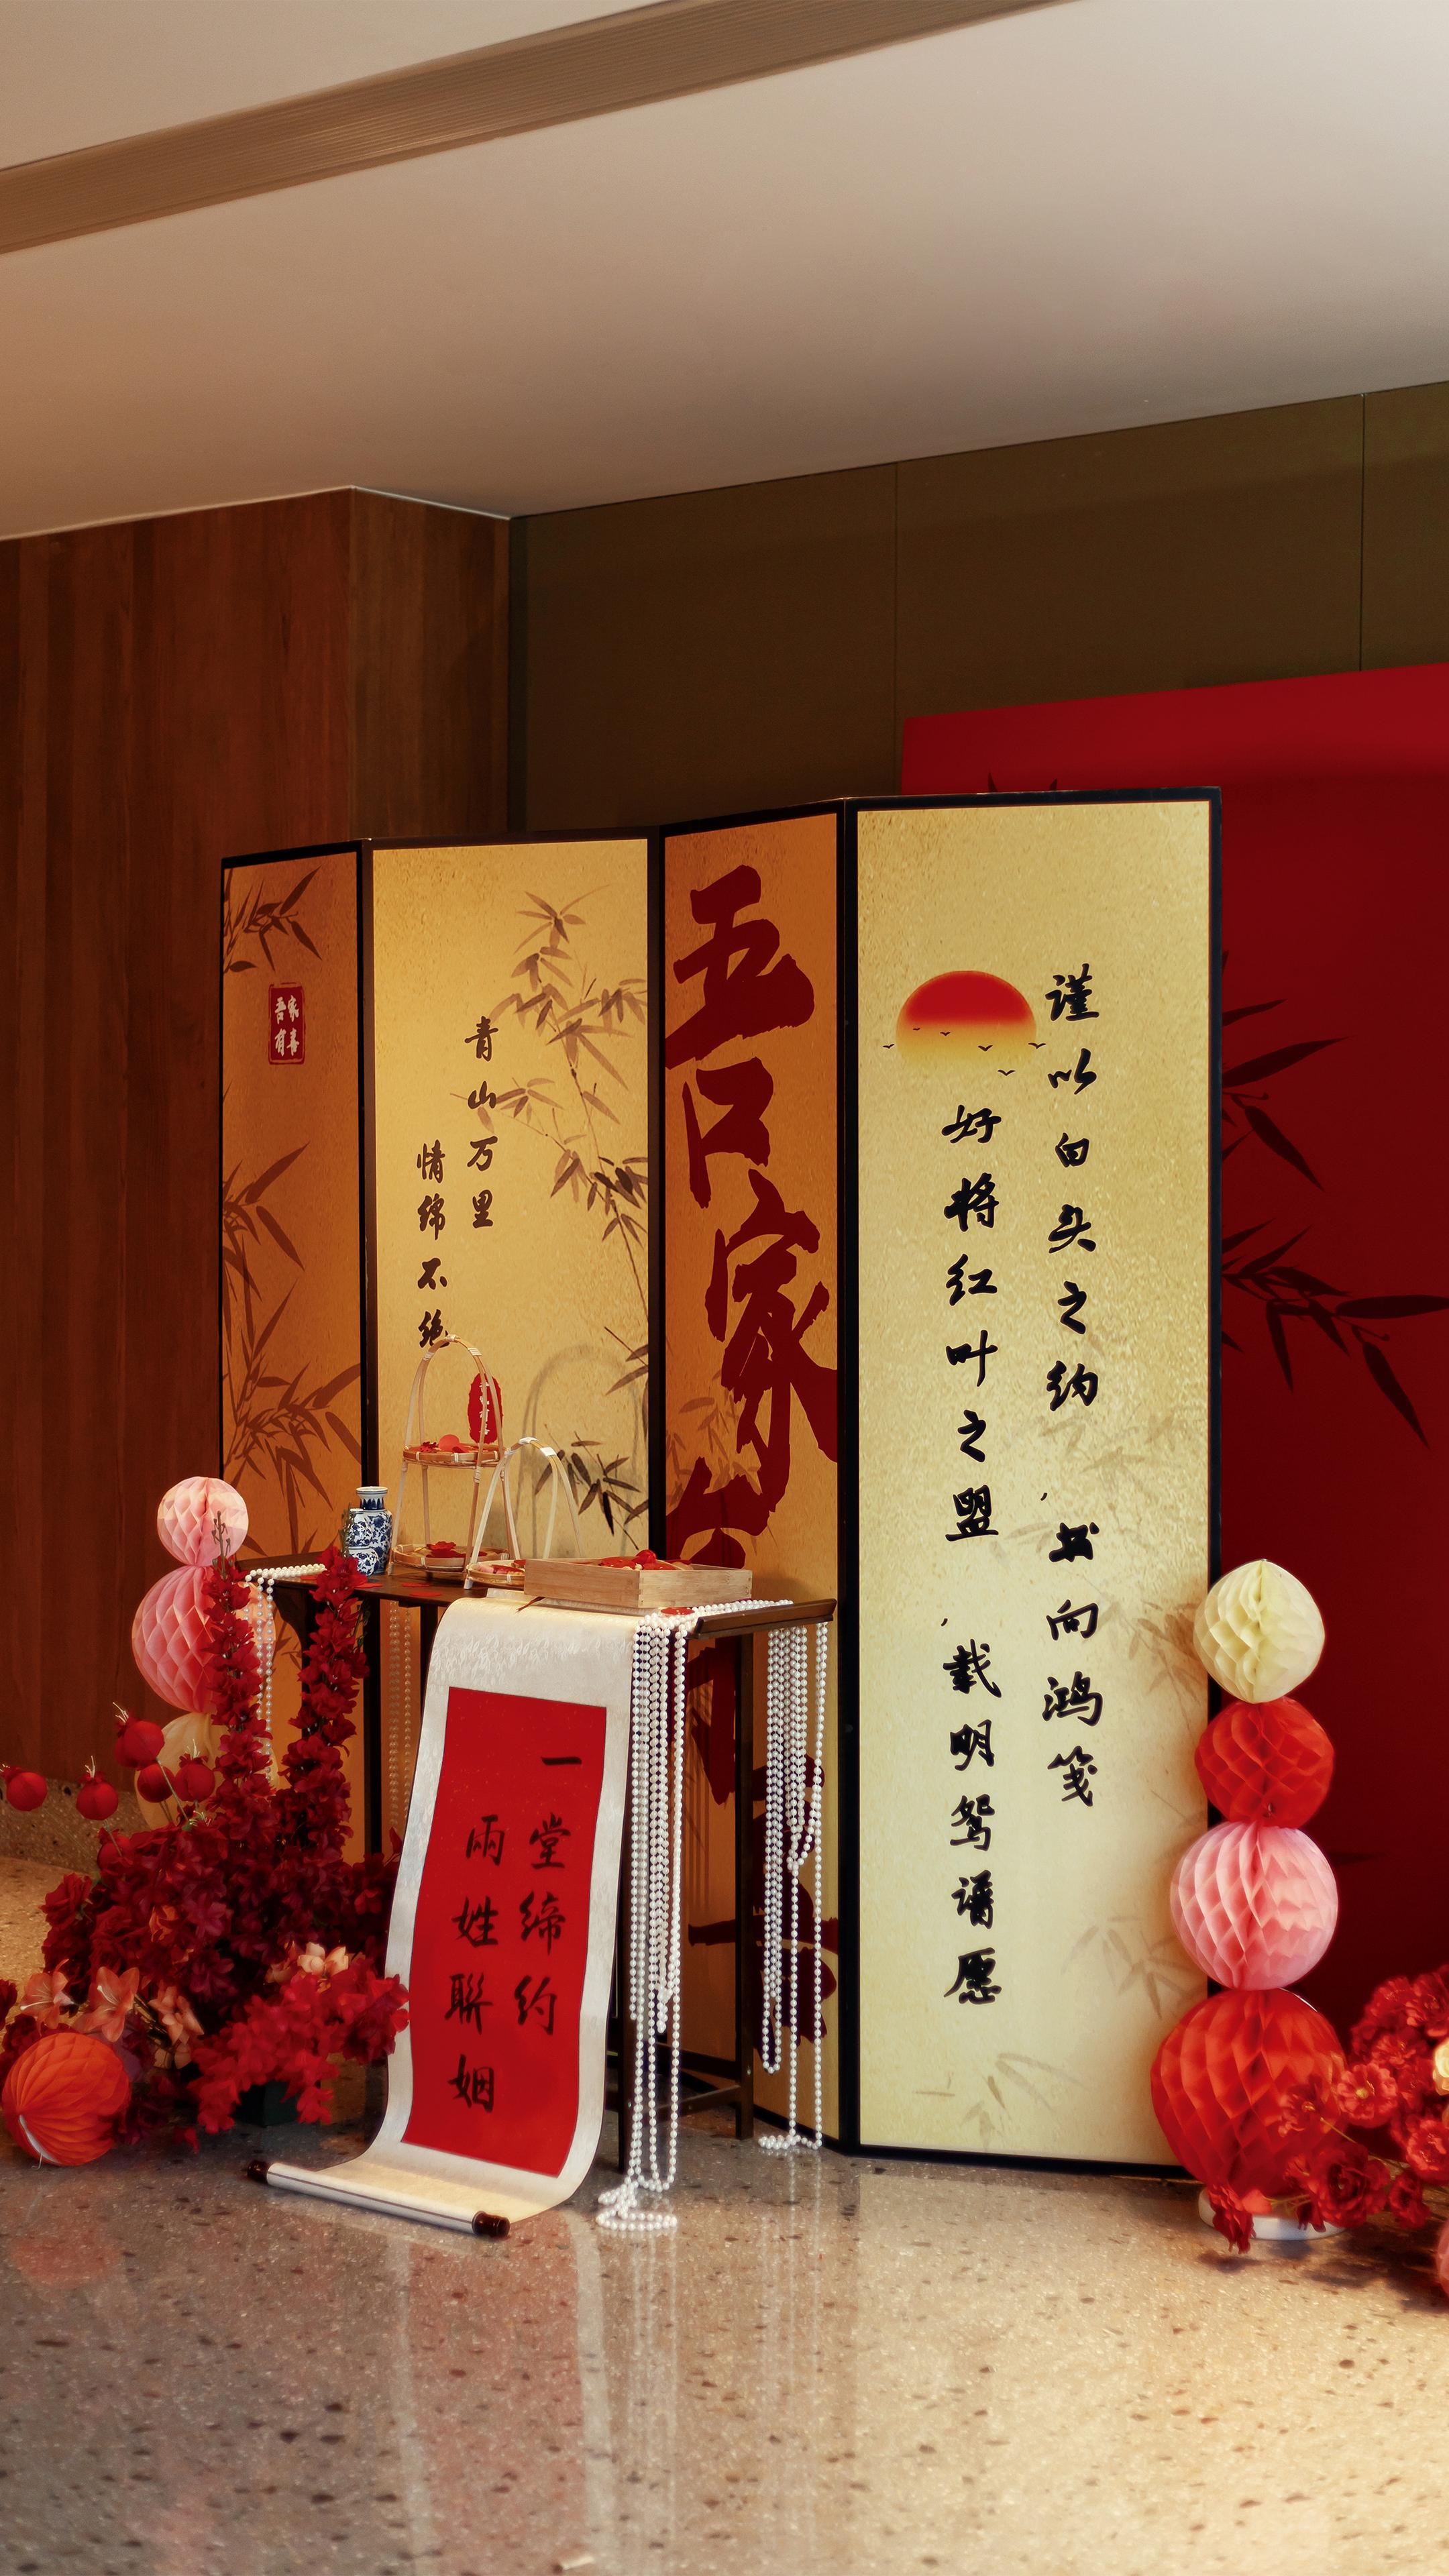 谨以白头之约，书向鸿笺
好将红叶之盟，载明鸳谱愿
吾家
青山万里
情绵不绝
吾家
有喜
一堂缔约
兩姓聯姻